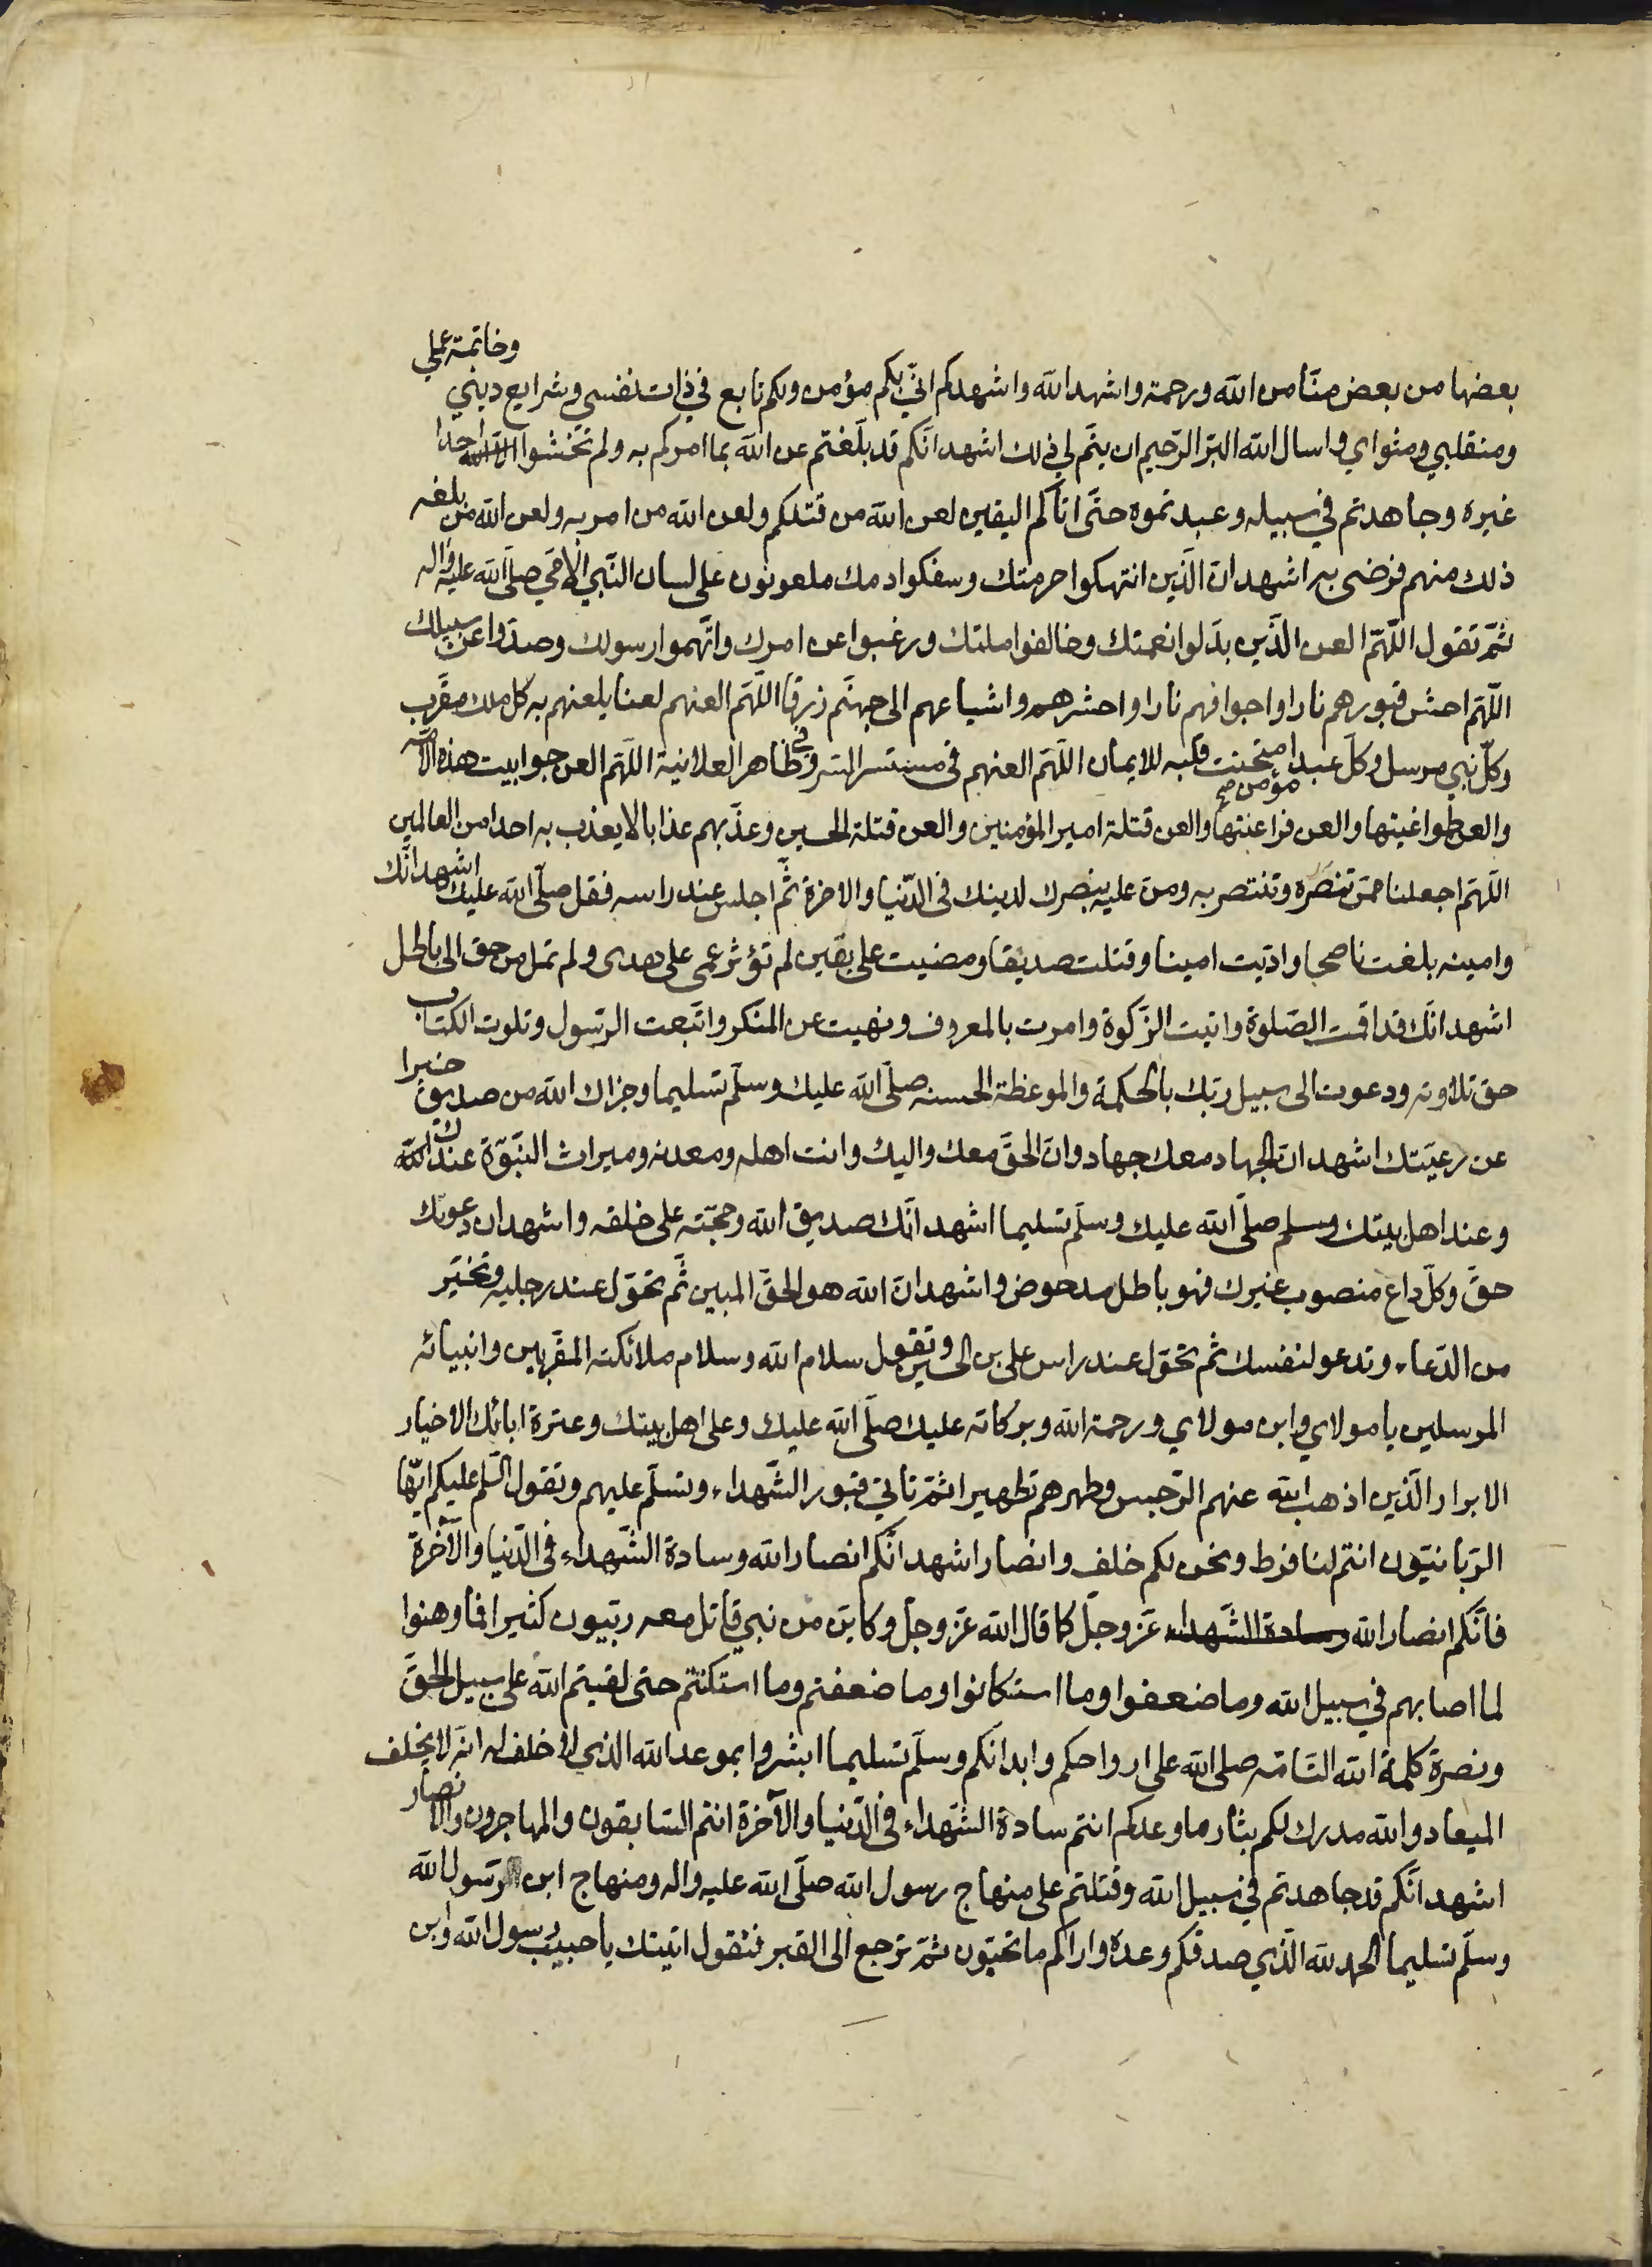 بعضها من بعض منّا من الله ورحمة واشهد الله واشهدكم انّي بكم مؤمن ولكم تابع في ذات نفسي وشرايع ديني وخاتمة عملي
ومنقلبي ومثواي واسال الله البرّ الرّحيم ان يتمّ لي ذلك اشهد انّكم قد بلّغتم عن الله بما امركم به ولم تخشوا احدا
غيره وجاهدتم في سبيله وعبدتموه حتّى اتاكم اليقين لعن الله من قتلكم ولعن الله من امر به ولعن الله من بلغه
ذلك منهم فرضى به اشهد انّ الّذين انتهكوا حرمتك وسفكوا دمك ملعونون على لسان النّبي الامّي صلّى الله عليه واله
ثمّ تقول اللّهمّ العن الّذين بدّلوا نعمتك وخالفوا ملتك ورغبوا عن امرك واتّهموا رسولك وصدّوا عن سبيلك
اللّهمّ احش قبورهم نارا واجوافهم نارا واحشرهم واشياعهم الى جهنّم زرقا اللّهمّ العنهم لعنا يلعنهم به كل ملك مقرّب
وكلّ نبي مرسل وكلّ عبد مؤمن صح امتحنت قلبه للايمان اللّهمّ العنهم في مستسر السّر وفي ظاهر العلانية اللّهمّ العن جوابيت هذه الامّة
والعن طواغيتها والعن فراعنتها والعن قتلة امير المؤمنين والعن قتلة الحسين وعذّبهم عذابا لا يعذب به احدا من العالمين
اللّهمّ اجعلنا ممّن تنصره وتنتصر به ومنّ عليه بنصرك لدينك في الدّنيا والاخرة ثمّ اجلس عند راسه فقل صلّى الله عليك اشهد انّك
وامينه بلغت ناصحا وادّيت امينا وقتلت صديقا ومضيت على يقين لم تؤثر عمى على هدى ولم تمل من حق الى باطل
اشهد انّك قد اقمت الصّلوة واتيت الزّكوة وامرت بالمعروف ونهيت عن المنكر واتّبعت الرّسول وتلوت الكتاب
حق تلاوته ودعوت الى سبيل ربّك بالحكمة والموعظة الحسنه صلّى الله عليك وسلّم تسليما وجزاك الله من صديق خيرا
عن رعيّتك اشهد انّ الجهاد معك جهاد وانّ الحقّ معك واليك وانت اهله ومعدنه وميراث النّبوّة عندك
وعند اهل بيتك وسلم صلّى الله عليك وسلّم تسليما اشهد انّك صديق الله وحجّته على خلقه واشهد ان دعوتك
حقّ وكلّ داع منصوب غيرك فهو باطل مدحوض واشهد انّ الله هو الحقّ المبين ثمّ تحوّل عند رجليه وتخيّر
من الدّعاء وتدعو لنفسك ثم تحوّل عند راس علي بن الحسين وتقول سلام الله وسلام ملائكته المقرّبين وانبيائه
المرسلين يا مولاي وابن مولاي ورحمة الله وبركاته عليك صلّى الله عليك وعلى اهل بيتك وعترة ابائك الاخيار
الابرار الّذين اذهب الله عنهم الرّجس وطهرهم تطهيرا ثمّ تاتي قبور الشّهداء وتسلّم عليهم وتقول السّلم عليكم ايّها
الرّبّانيّون انتم لنا فرط ونحن لكم خلف وانصار اشهد انّكم انصار الله وسادة الشّهداء في الدّنيا والآخرة
فانّكم انصار الله وسادة الشّهداء عزّ وجلّ كما قال الله عزّ وجلّ وكاين من نبي قاتل معه ربّيون كثير فما وهنوا
لما اصابهم في سبيل الله وما ضعفوا وما استكانوا وما ضعفتم وما استكنتم حتى لقيتم الله على سبيل الحقّ
ونصرة كلمة الله التّامّه صلى الله على ارواحكم وابدانكم وسلّم تسليما ابشروا بموعد الله الذي لا خلف له انّه لا يخلف
الميعاد والله مدرك لكم بثار ما وعدكم انتم سادة الشّهداء في الدّنيا والآخرة انتم السّابقون والمهاجرون والانصار
اشهد انّكم قد جاهدتم في سبيل الله وقتلتم على منهاج رسول الله صلّى الله عليه واله ومنهاج ابن رسول الله
وسلّم تسليما الحمد لله الّذي صدقكم وعده واراكم ما تحبّون ثمّ ترجع الى القبر فتقول اتيتك يا حبيب رسول الله وابن